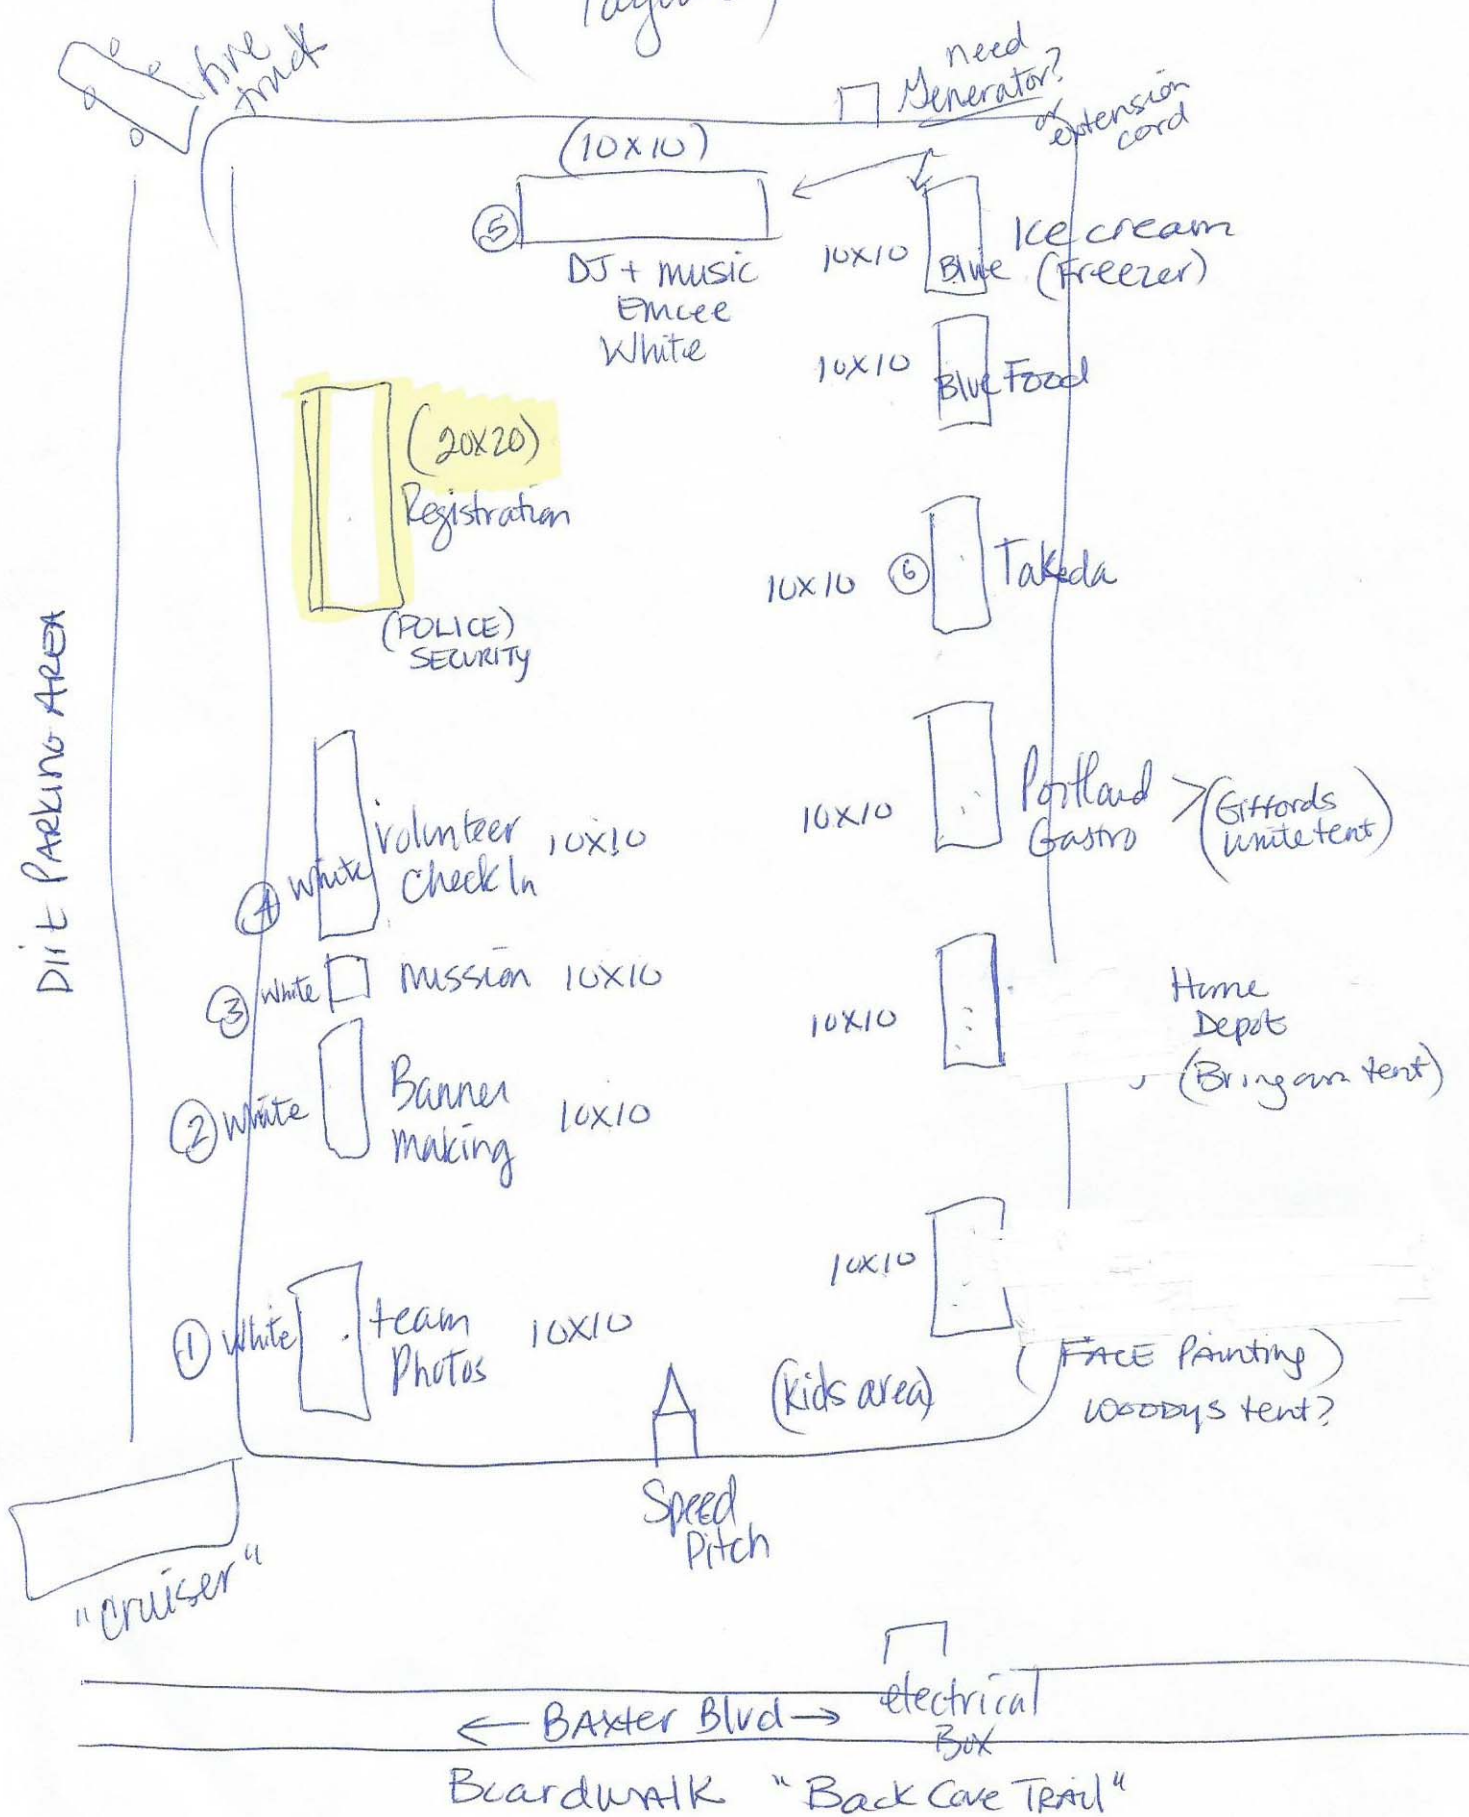 fire
truck
need
Generator?
or
extension
cord
(10X10)
5
DJ + music
Emcee
White
10X10
Blue
Ice cream
(Freezer)
10X10
Blue
Food
(20X20)
Registration
(POLICE)
SECURITY
10X10
6
Takeda
Dirt PARKING AREA
4
White
Volunteer
Check In
10X10
10X10
Portland
Gastro
>
(Giffords
White tent)
3
White
Mission
10X10
10X10
Home
Depot
(Bring own tent)
2
White
Banner
making
10X10
1
White
team
Photos
10X10
10X10
(kids area)
(FACE Painting)
WOODYS tent?
Speed
Pitch
"Cruiser"
electrical
Box
← BAXter Blvd →
BoardwAlk "Back Cove TRAil"